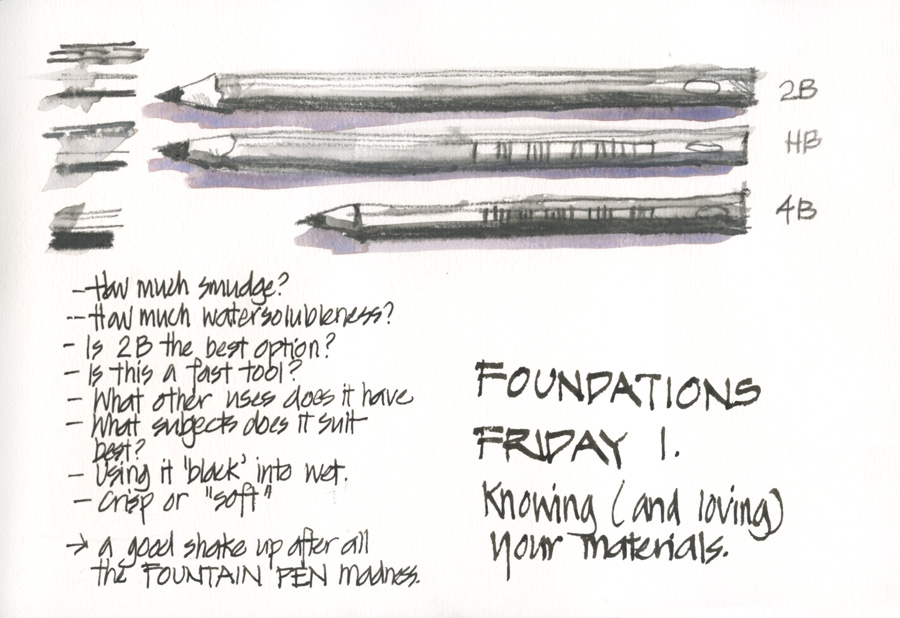 2B
HB
4B
- How much smudge?
-- How much watersolubleness?
- Is 2B the best option?
- Is this a fast tool?
- What other uses does it have
- What subjects does it suit
best?
- Using it 'black' into wet.
- Crisp or "soft"
→ a good shake up after all
the FOUNTAIN PEN madness.
FOUNDATIONS
FRIDAY 1.
Knowing (and loving)
your materials.